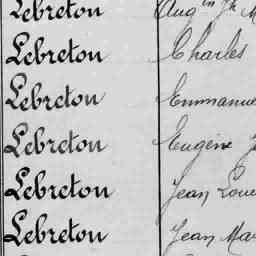 Lebreton
Lebreton Charles
Lebreton Emmanuel
Lebreton Eugène
Lebreton Jean Louis
Lebreton Jean Mar